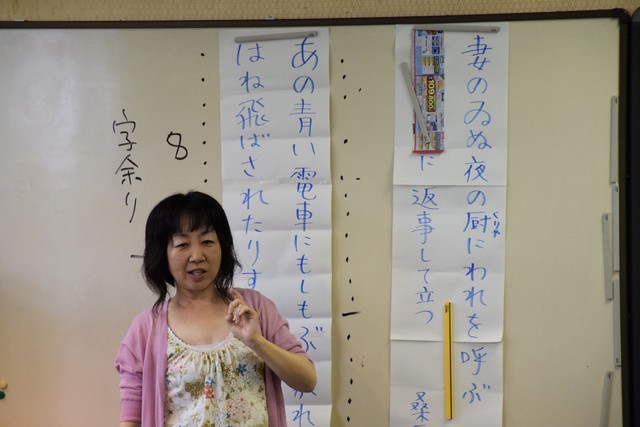 妻のゐぬ夜の厨にわれを呼ぶ
くりや
に返事して立つ
桑
あの青い電車にもしもぶ
はね飛ばされたりす
8
字余り